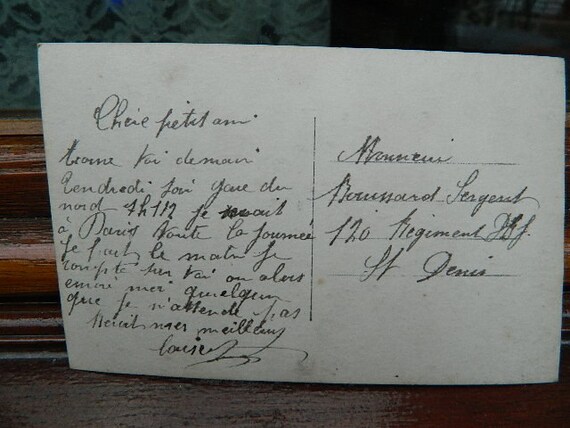 Chérie petit ami
trouve toi demain
Vendredi soir gare du
nord 7h1/2 je
à Paris toute la journée
Je part le matin Je
compte sur toi ou alors
envoie moi quelqu'un
que je n'attende pas
meilleurs
Louise
Monsieur
Boussard Sergent
120 Régiment
St Denis